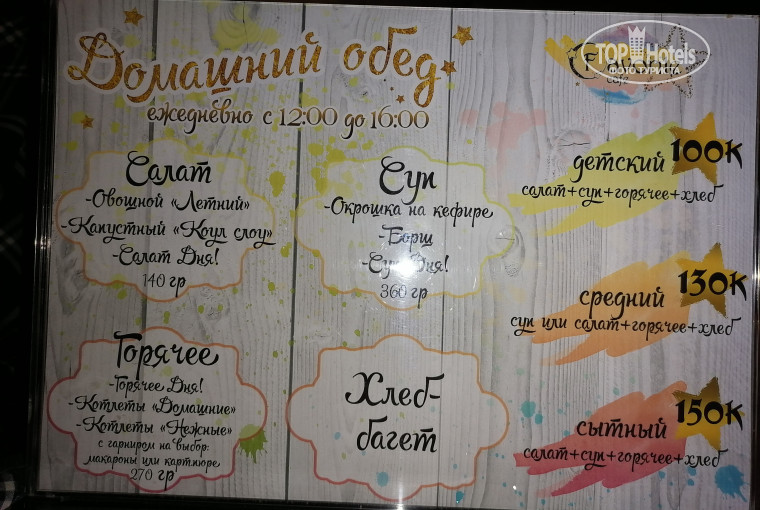 Домашний обед
ежедневно с 12:00 до 16:00
TOP Hotels
ФОТО ТУРИСТА
Салат
-Овощной «Летний»
-Капустный «Коул слоу»
-Салат Дня!
140 гр
Суп
-Окрошка на кефире
-Борщ
-Суп Дня!
360 гр
Горячее
-Горячее Дня!
-Котлеты «Домашние»
-Котлеты «Нежные»
с гарниром на выбор:
макароны или картпюре
270 гр
Хлеб-
багет
детский 100К
салат+суп+горячее+хлеб
средний 130К
суп или салат+горячее+хлеб
сытный 150К
салат+суп+горячее+хлеб